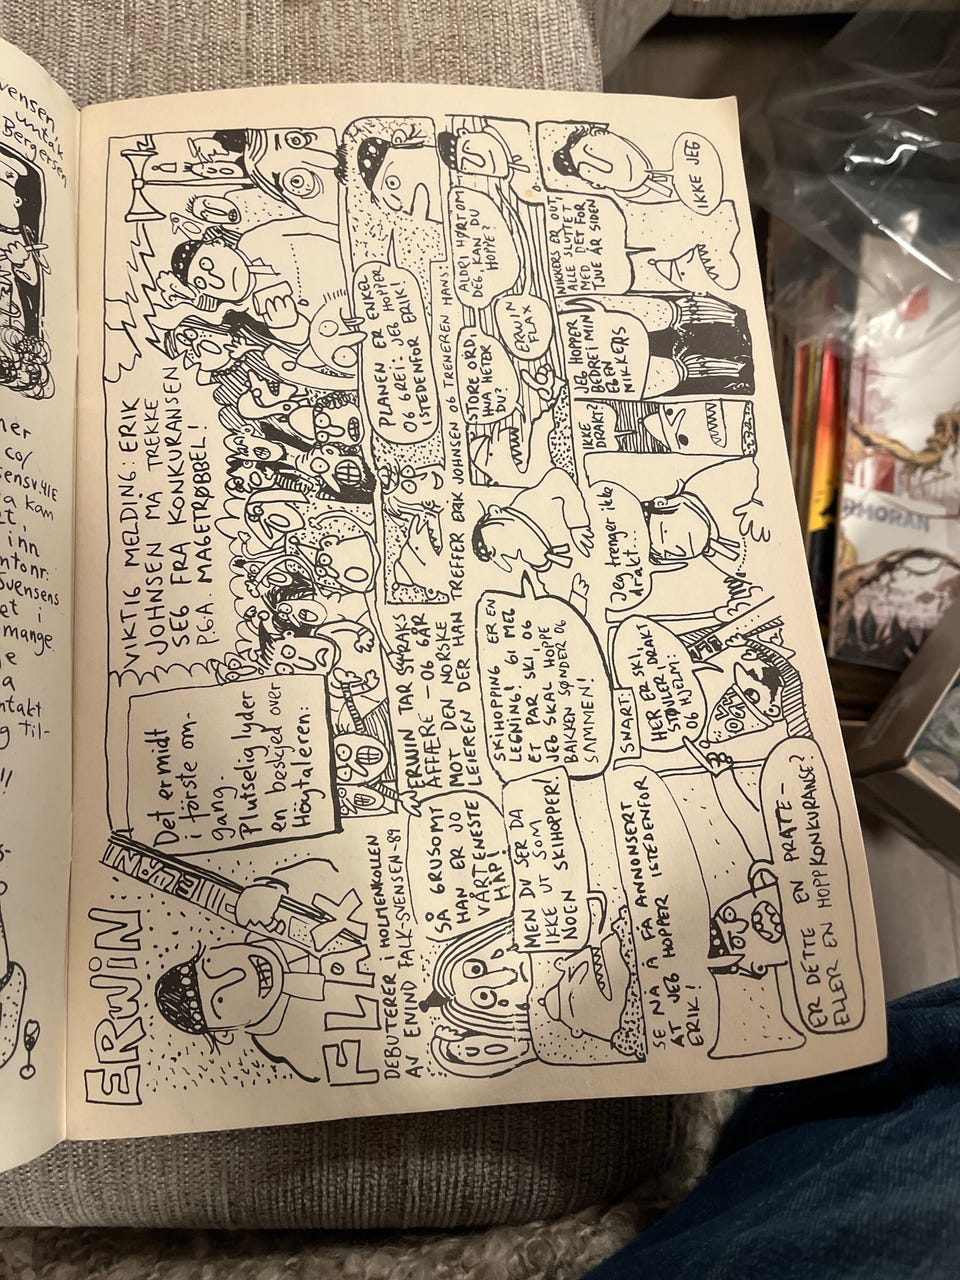 ERWIN
FLAX
DEBUTERER I HOLMENKOLLEN
AV EIVIND FALK-SVENSEN-89
Det er midt
i förste om-
gang.
Plutselig lyder
en beskjed over
Höytaleren:
VIKTIG MELDING: ERIK
JOHNSEN MÅ TREKKE
SEG FRA KONKURANSEN
PGA. MAGETRØBBEL!
SÅ GRUSOMT
HAN ER JO
VÅRT ENESTE
HÅP!
ERWIN TAR STRAKS
AFFÆRE - OG GÅR
MOT DEN NORSKE
LEIEREN DER HAN
TREFFER ERIK JOHNSEN OG TRENEREN HANS:
PLANEN ER ENKEL
OG GREI: JEG HOPPER
ISTEDENFOR ERIK!
MEN DU SER DA
IKKE UT SOM
NOEN SKIHOPPER!
SKIHOPPING ER EN
LEGNING! GI MEG
ET PAR SKI, OG
JEG SKAL HOPPE
BAKKEN SØNDER OG
SAMMEN!
STORE ORD,
HVA HETER
DU?
ERWIN
FLAX
ALDRI HØRT OM
DEG, KAN DU
HOPPE?
SE NÅ Å FÅ ANNONSERT
AT JEG HOPPER ISTEDENFOR
ERIK!
SNART:
HER ER SKI,
STØVLER, DRAKT
OG HJELM:
Jeg trenger ikke
drakt...
IKKE
DRAKT?
JEG HOPPER
BEDRE I MIN
EGEN
NIKKERS
NIKKERS ER OUT,
ALLE SLUTTET
MED DET FOR
TJUE ÅR SIDEN
IKKE JEG
ER DETTE EN PRATE-
ELLER EN HOPPKONKURANSE?
vensen
Bergersen
inn
i
mange
ntakt
g til-